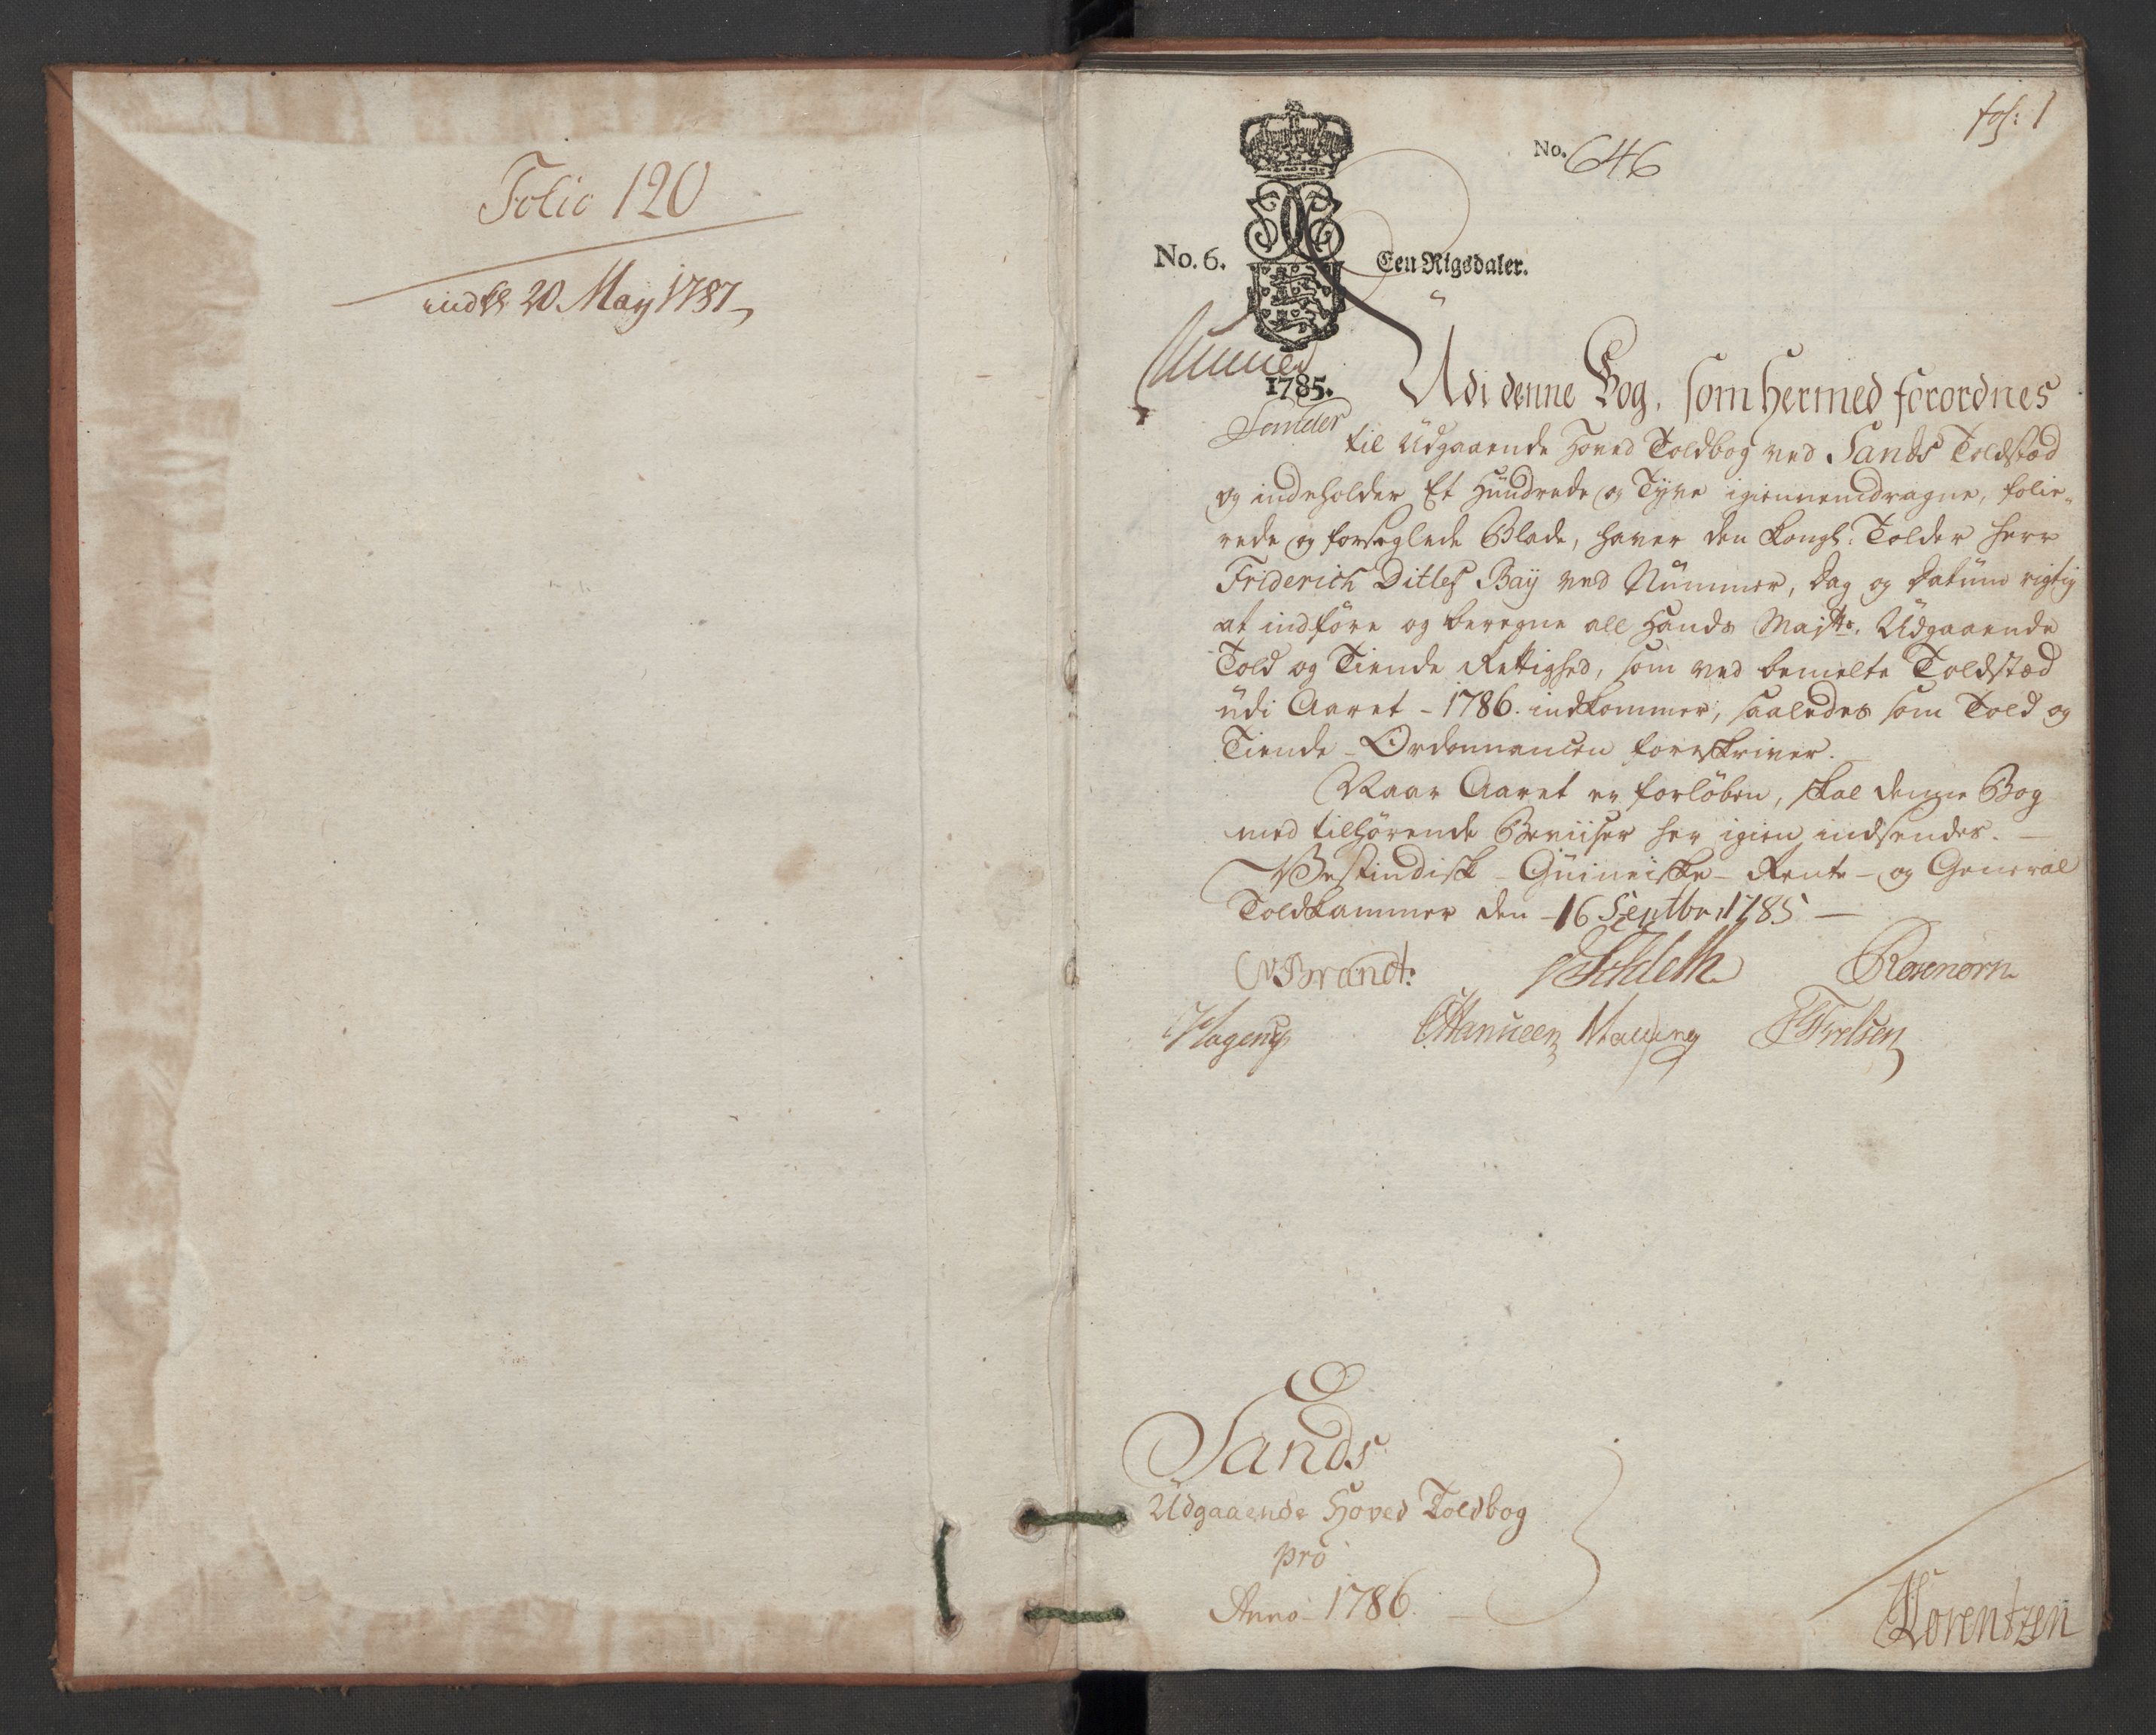 Folio 120
indk 20. May 1787
fol: 1
No. 646
No. 6.
Een Rigsdaler.
1785.
Udi denne Bog, som hermed forordnes
til Udgaaende Hoved Toldbog ved Sands Toldstæd
og indeholder Et Hundrede og Tyve igiennemdragne, folie-
rede og forseglede Blade, haver den Kongl. Tolder Herr
Friderich Ditlef Baÿ ved Nummer, Dag og Datum rigtig
at indføre og beregne all Hands Maÿtts. Udgaaende
Told og Tiende Rettighed, som ved bemelte Toldstæd
udi Aaret - 1786. indkommer, saaledes som Told og
Tiende-Ordonnancen foreskriver.
Naar Aaret er forløben, skal denne Bog
med tilhørende Beviiser her igien indsendes. —
Vestindisk- Guineiske- Rente- og General
Toldkammer den - 16 Septbr 1785 —
Brandt.
Rosenørn
Hansen Malling
Sands
Udgaaende Hoved Toldbog
pro
Anno - 1786. —
Lorentzen